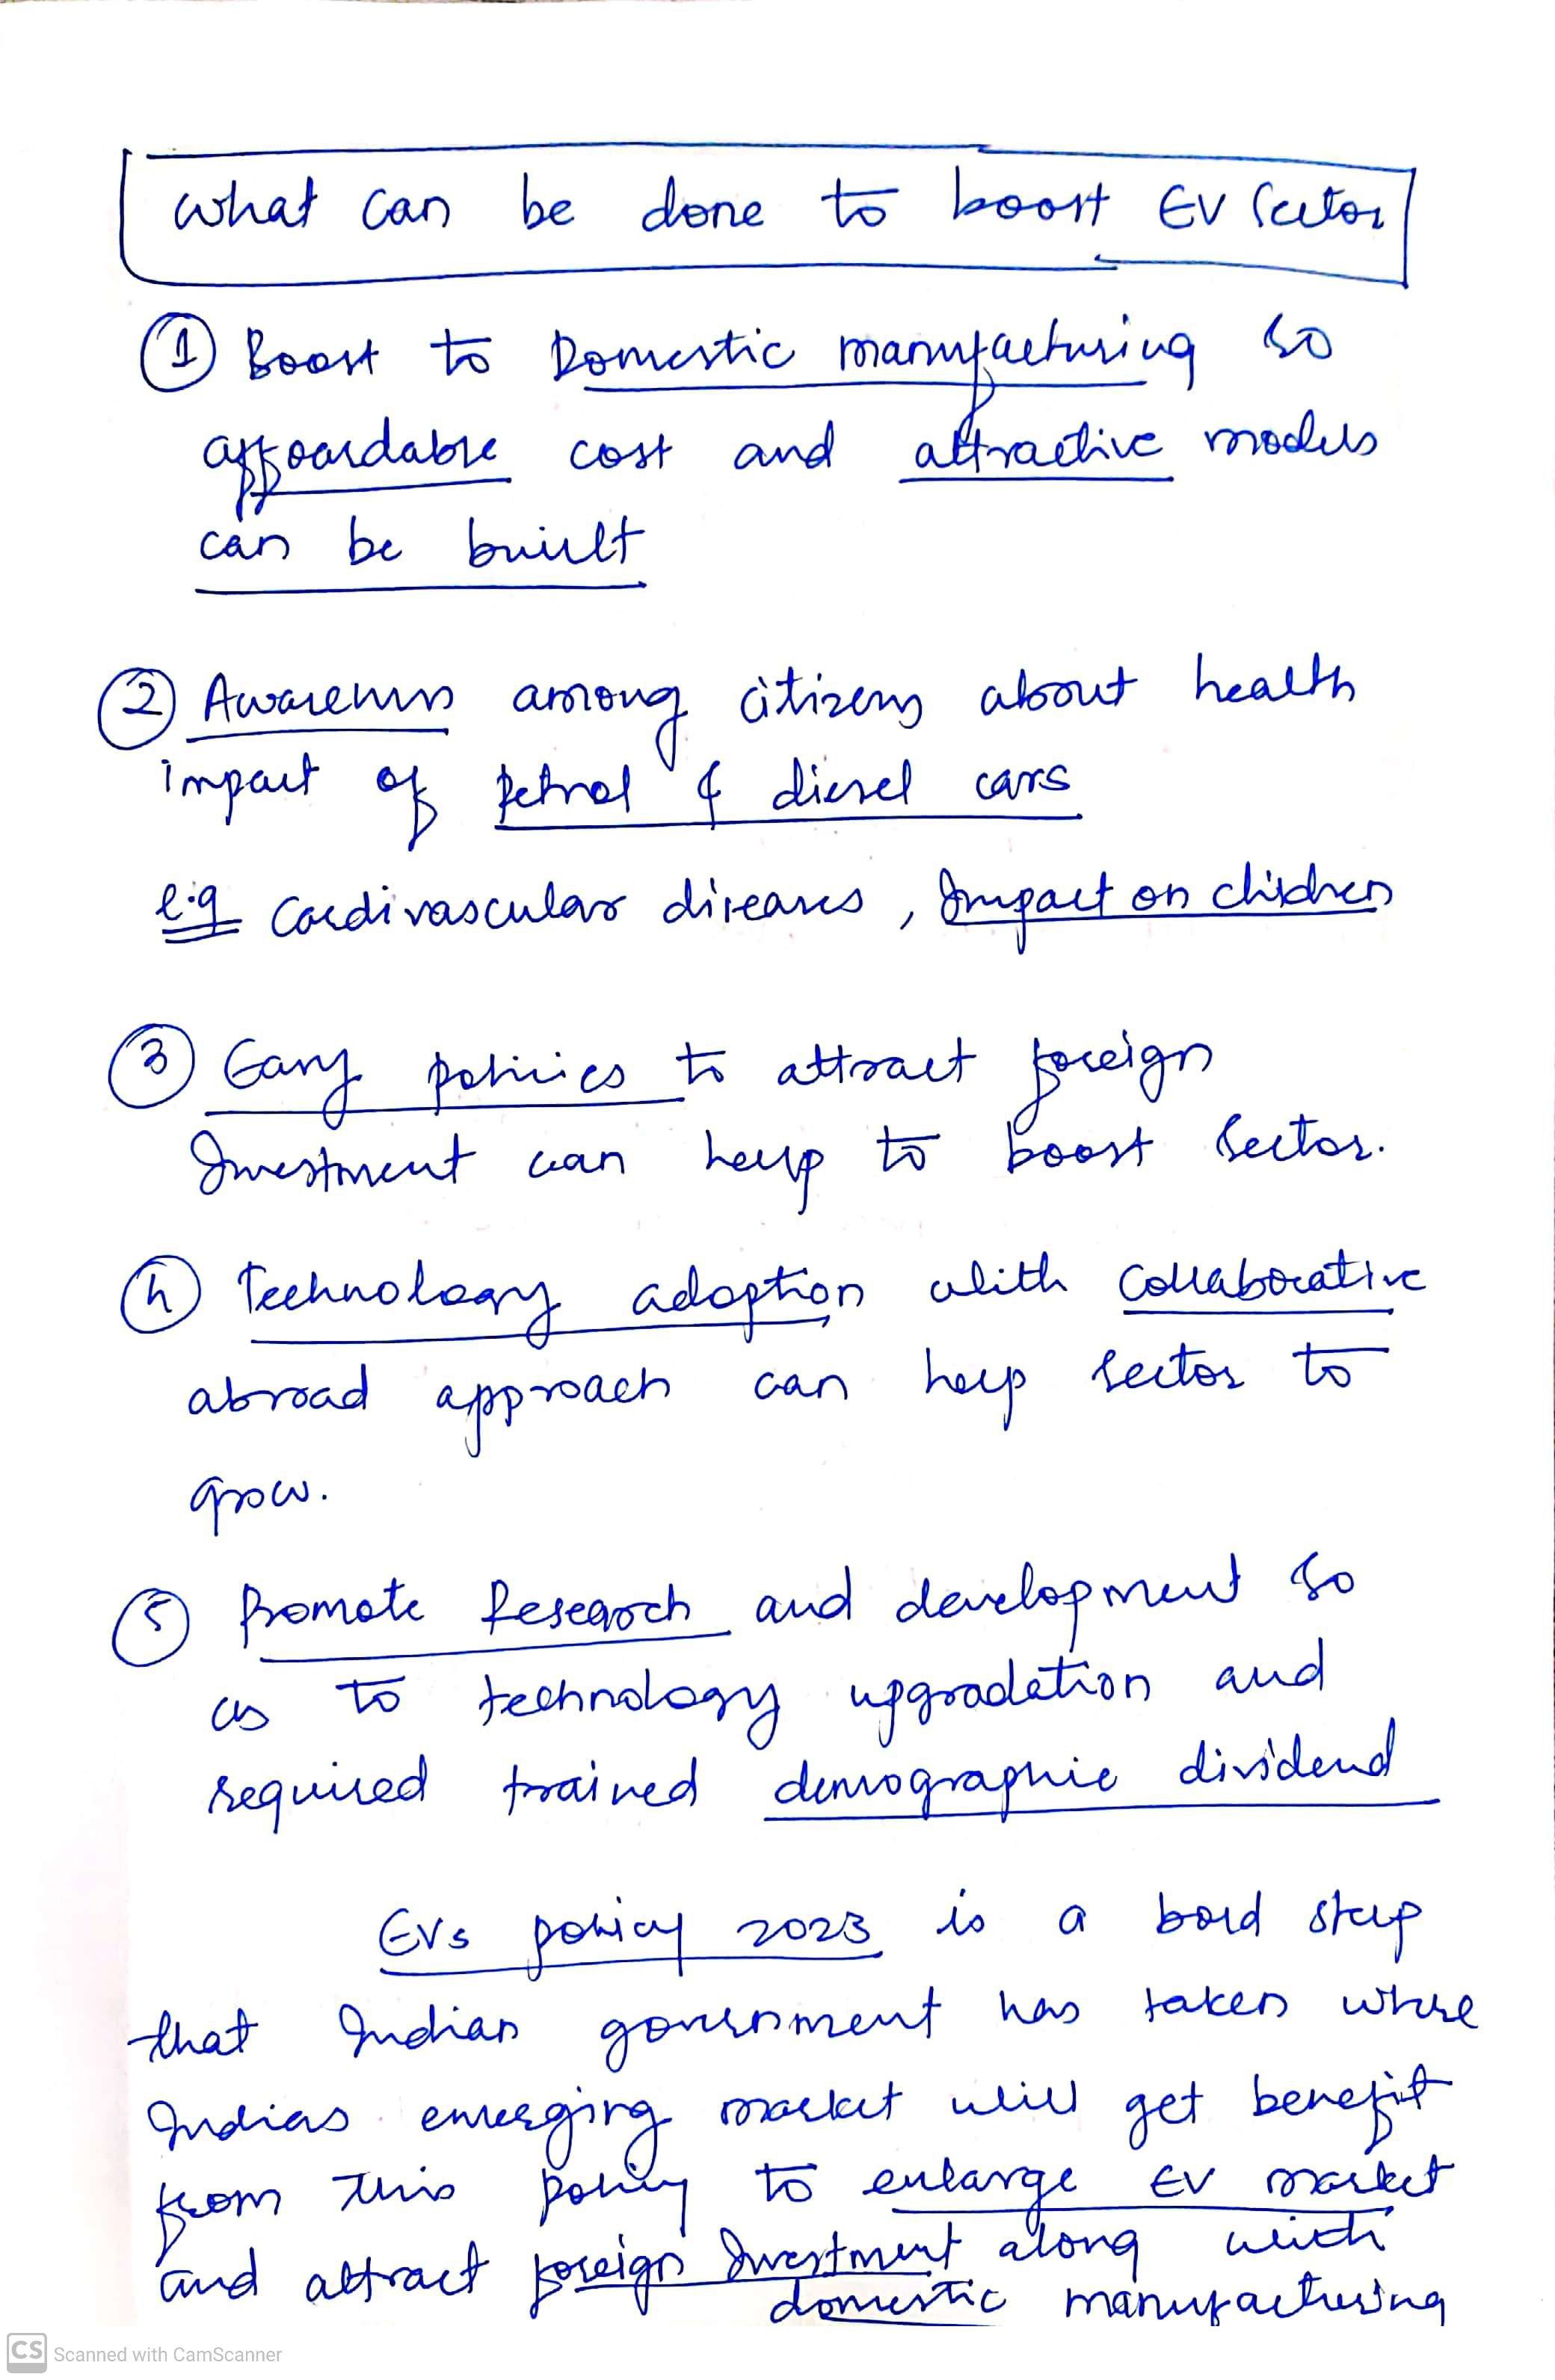 what can be done to boost EV Sector
① Boost to Domestic manufacturing so
affoardable cost and attractive models
can be built
② Awareness among citizens about health
impact of petrol & diesel cars
e.g Cardivascular diseases, Impact on children
③ Easy policies to attract foreign
Investment can help to boost sector.
④ Technology adoption with collaborative
abroad approach can help sector to
grow.
⑤ Promote Research and development so
as to technology upgradation and
required trained demographic dividend
EVs policy 2023 is a bold step
that Indian government has taken where
Indias emerging market will get benefit
from this policy to enlarge EV market
and attract foreign Investment along with
domestic manufacturing
CS Scanned with CamScanner